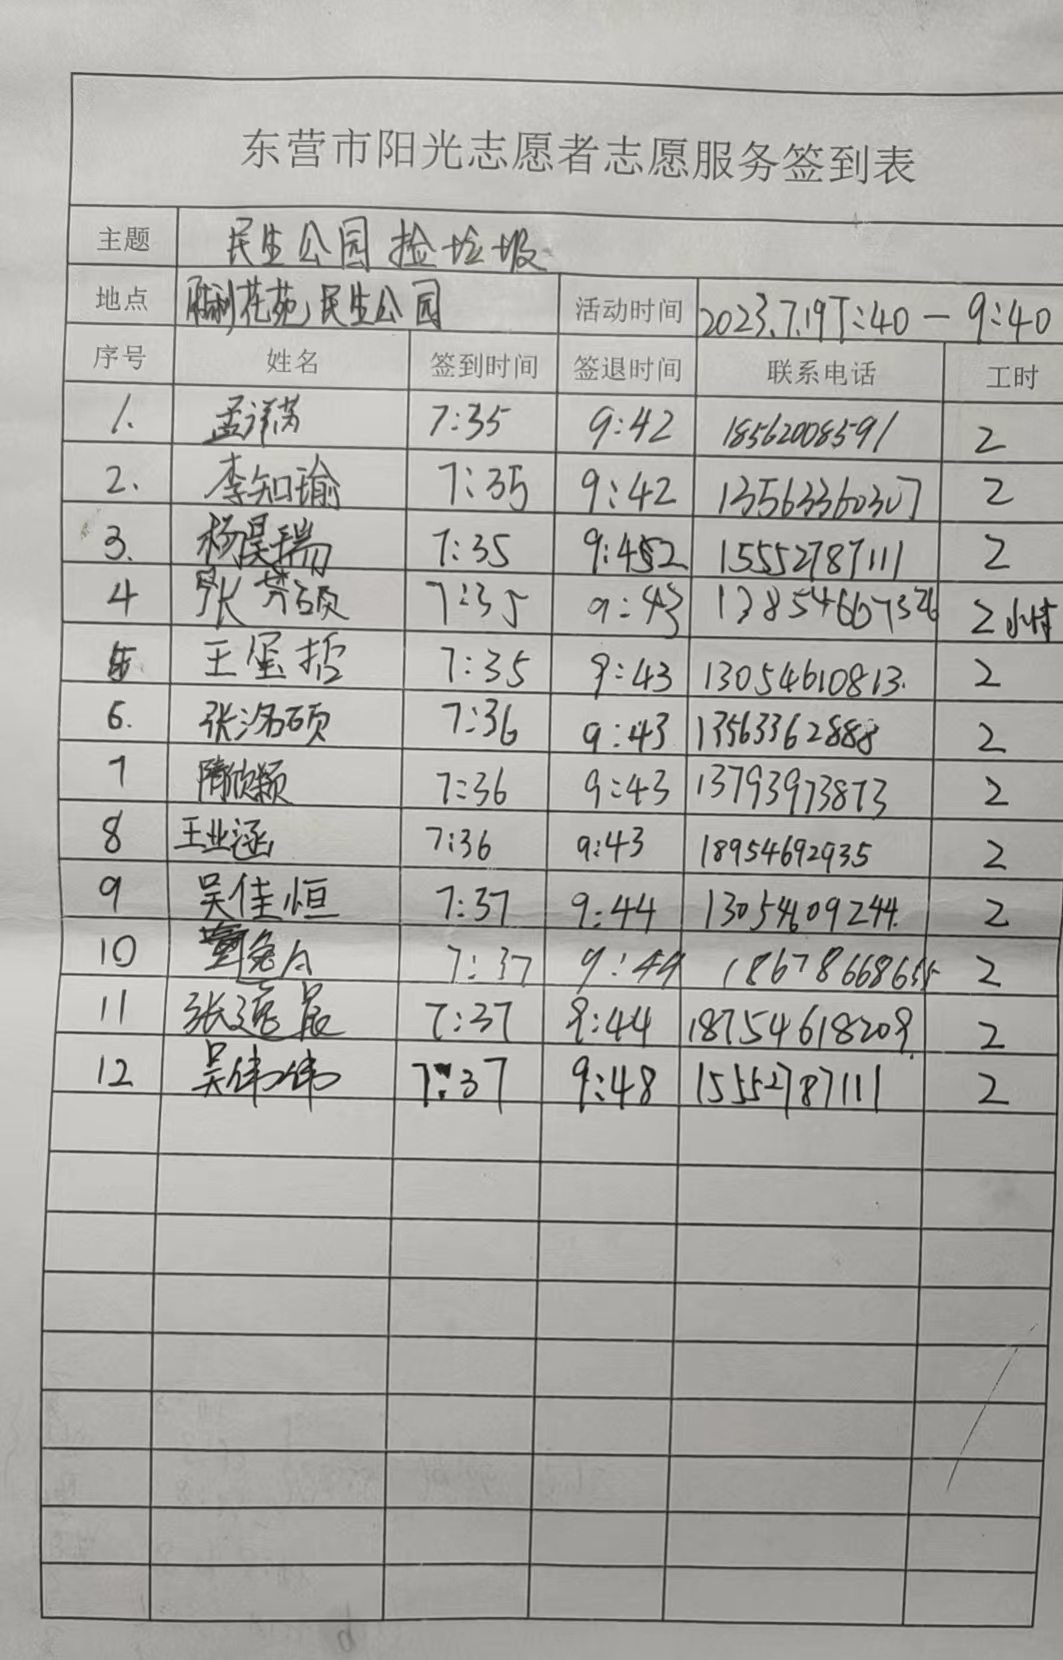 东营市阳光志愿者志愿服务签到表
主题 民生公园捡垃圾
地点 胜利花苑,民生公园 活动时间 2023.7.19 7:40-9:40
序号 姓名 签到时间 签退时间 联系电话 工时
1. 孟祥茜 7:35 9:42 18562008591 2
2. 李知瑜 7:35 9:42 13563360307 2
3. 杨昊瑞 7:35 9:452 15552787111 2
4 张芳硕 7:35 9:43 2小时
5 王 哲 7:35 9:43 13054610813. 2
6. 张洺硕 7:36 9:43 13563362888 2
7 隋欣颖 7:36 9:43 13793973873 2
8 王业涵 7:36 9:43 18954692935 2
9 吴佳恒 7:37 9:44 13054609244. 2
10 7:37 9:44 2
11 张逸晨 7:37 9:44 18754618209. 2
12 吴伟伟 7:37 9:48 15552787111 2